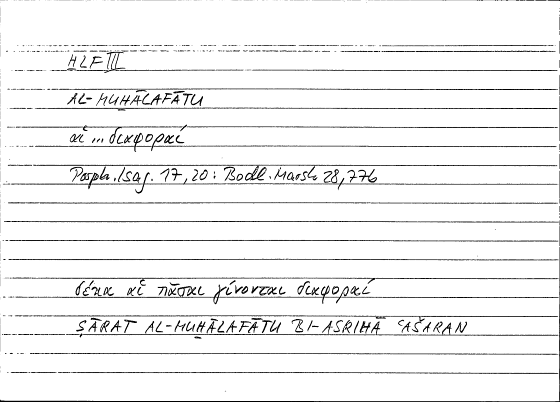 ḪLF III
AL-MUḪĀLAFĀTU
αἱ ... διαφοραί
Porph. Isag. 17, 20 : Bodl. Marsh 28, 77b
δέκα αἱ πᾶσαι γίνονται διαφοραί
ṢĀRAT AL-MUḪĀLAFĀTU BI-ASRIHĀ ʿAŠARAN